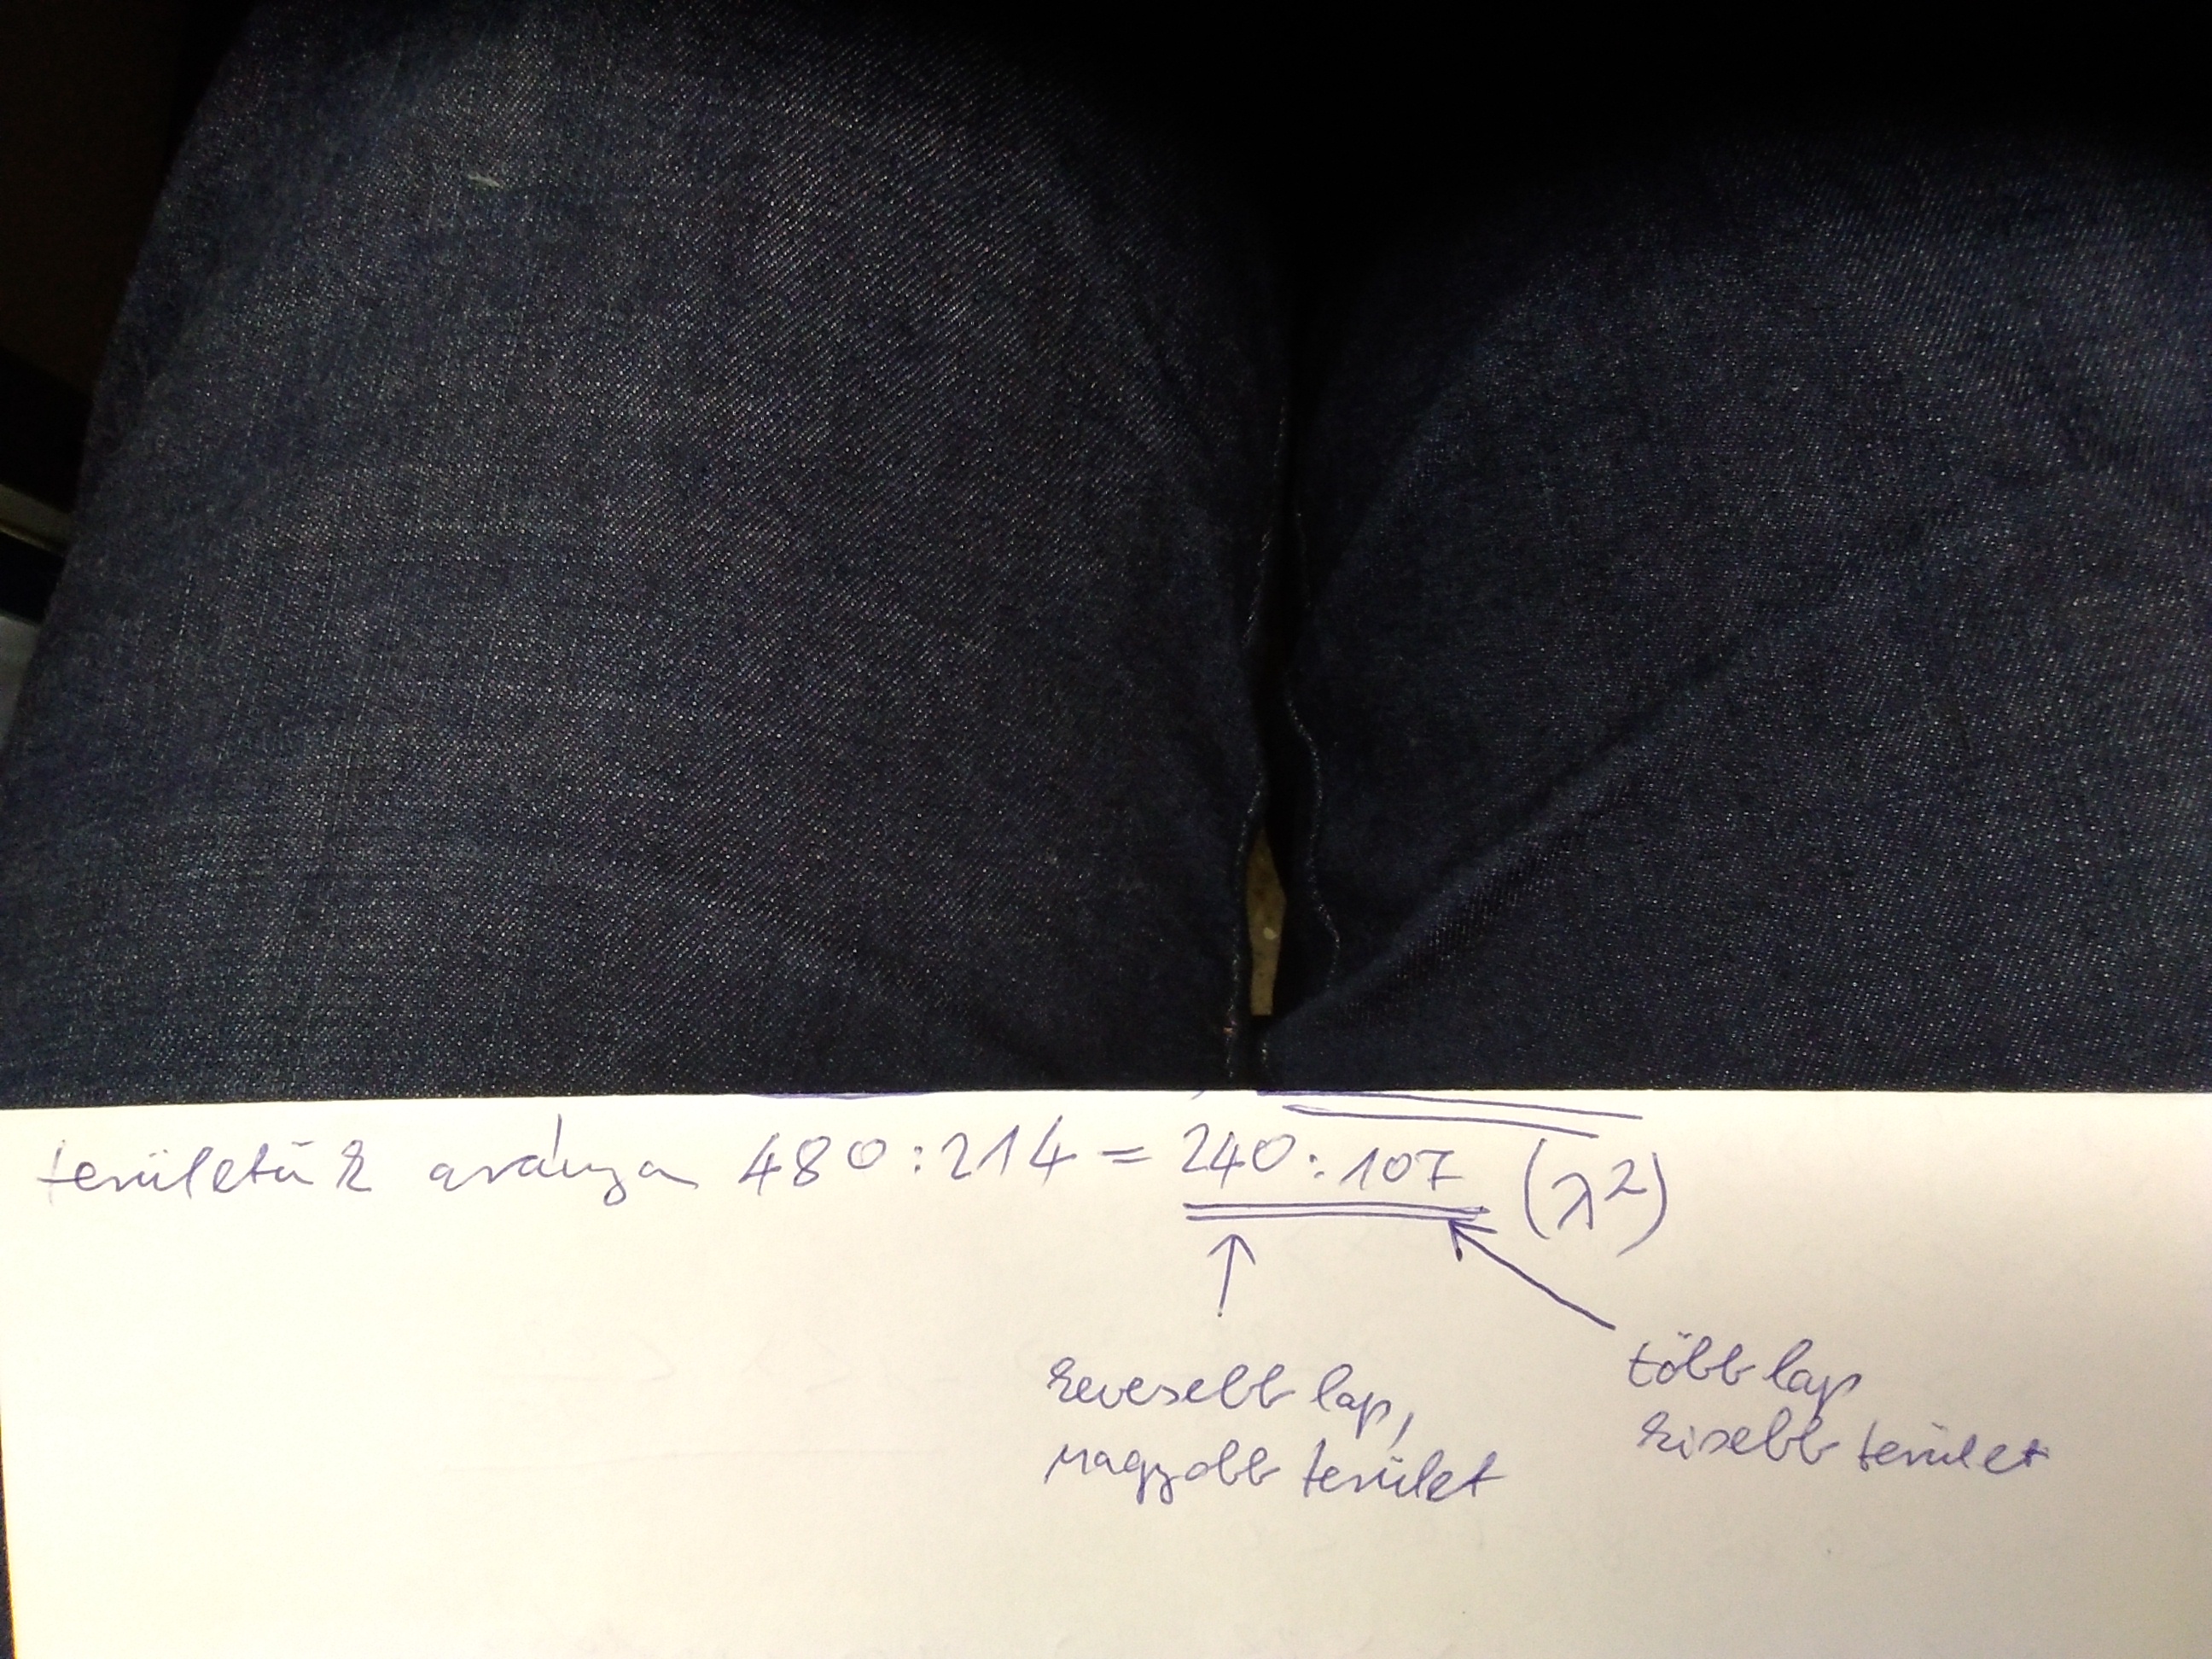 területük aránya 480:214 = 240:107 (λ²)
kevesebb lap,
nagyobb terület
több lap
kisebb terület